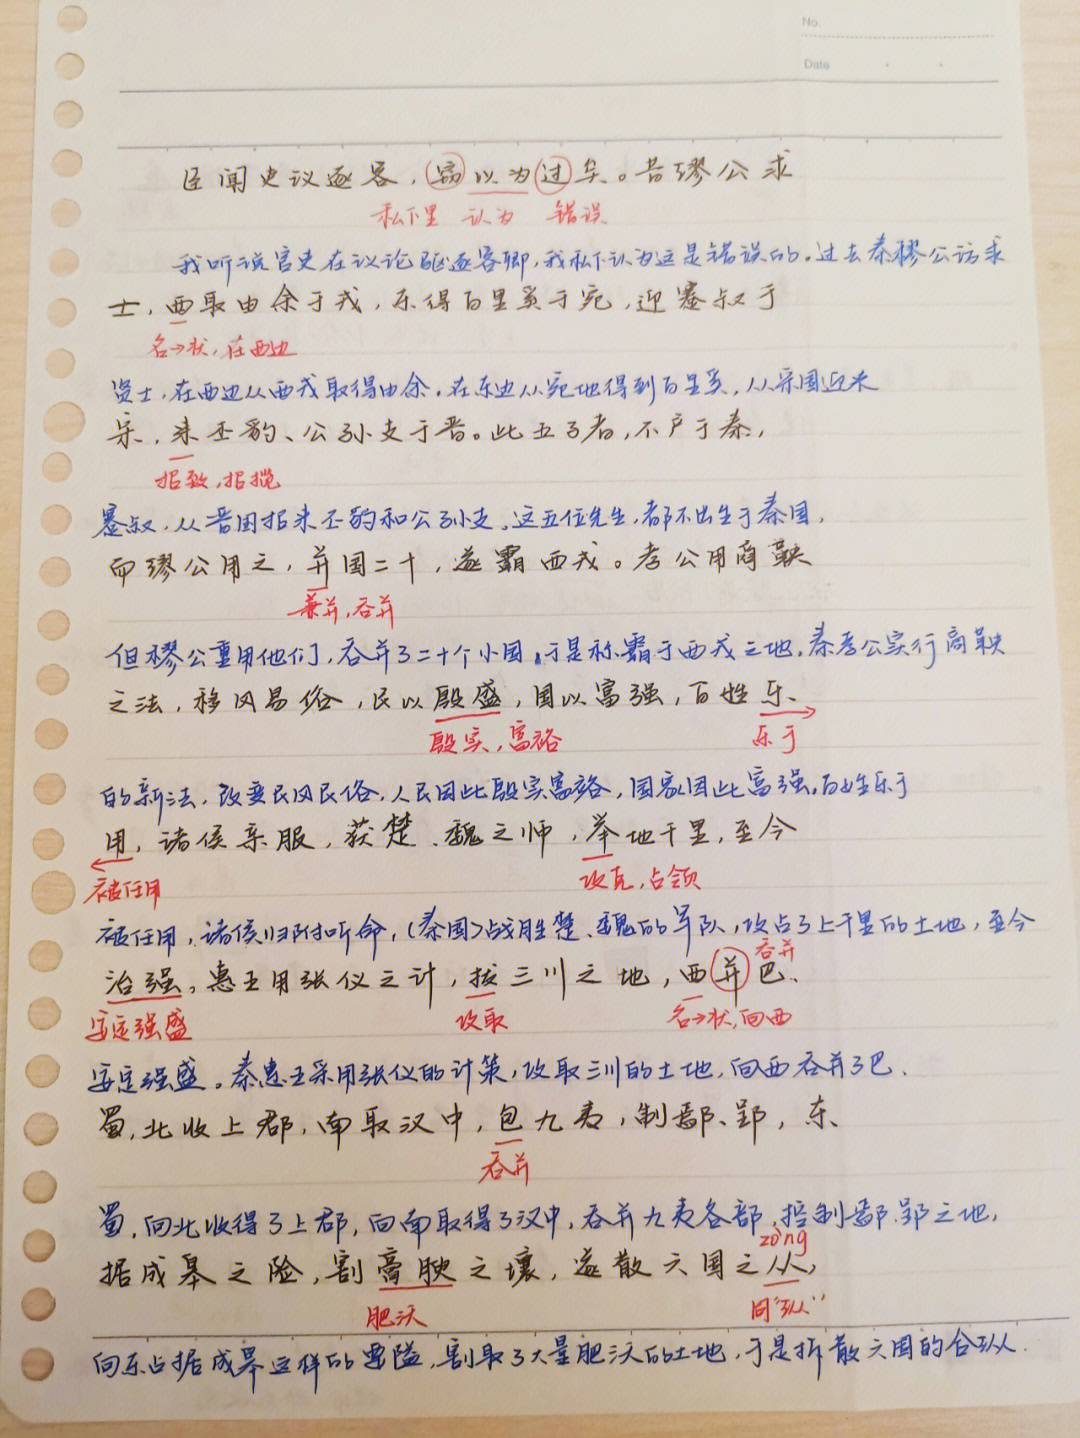 No.
Date
臣闻吏议逐客，窃以为过矣。昔缪公求
私下里 认为 错误
我听说官吏在议论驱逐客卿，我私下认为这是错误的。过去秦穆公访求
士，西取由余于戎，东得百里奚于宛，迎蹇叔于
名→状，在西边
贤士，在西边从西戎取得由余，在东边从宛地得到百里奚，从宋国迎来
宋，来丕豹、公孙支于晋。此五子者，不产于秦，
招致，招揽
蹇叔，从晋国招来丕豹和公孙支。这五位先生，都不出生于秦国，
而缪公用之，并国二十，遂霸西戎。孝公用商鞅
兼并，吞并
但穆公重用他们，吞并了二十个小国，于是称霸于西戎之地。秦孝公实行商鞅
之法，移风易俗，民以殷盛，国以富强，百姓乐
殷实，富裕 乐于
的新法，改变民风民俗，人民因此殷实富裕，国家因此富强，百姓乐于
用，诸侯亲服，获楚、魏之师，举地千里，至今
被任用 攻克，占领
被任用，诸侯归附听命，（秦国）战胜楚、魏的军队，攻占了上千里的土地，至今
吞并
治强。惠王用张仪之计，拔三川之地，西并巴、
安定强盛 攻取 名→状，向西
安定强盛。秦惠王采用张仪的计策，攻取三川的土地，向西吞并了巴、
蜀，北收上郡，南取汉中，包九夷，制鄢、郢，东
吞并
蜀，向北收得了上郡，向南取得了汉中，吞并九夷各部，控制鄢、郢之地，
zòng
据成皋之险，割膏腴之壤，遂散六国之从，
肥沃 同“纵”
向东占据成皋这样的要隘，割取了大量肥沃的土地，于是拆散六国的合纵．